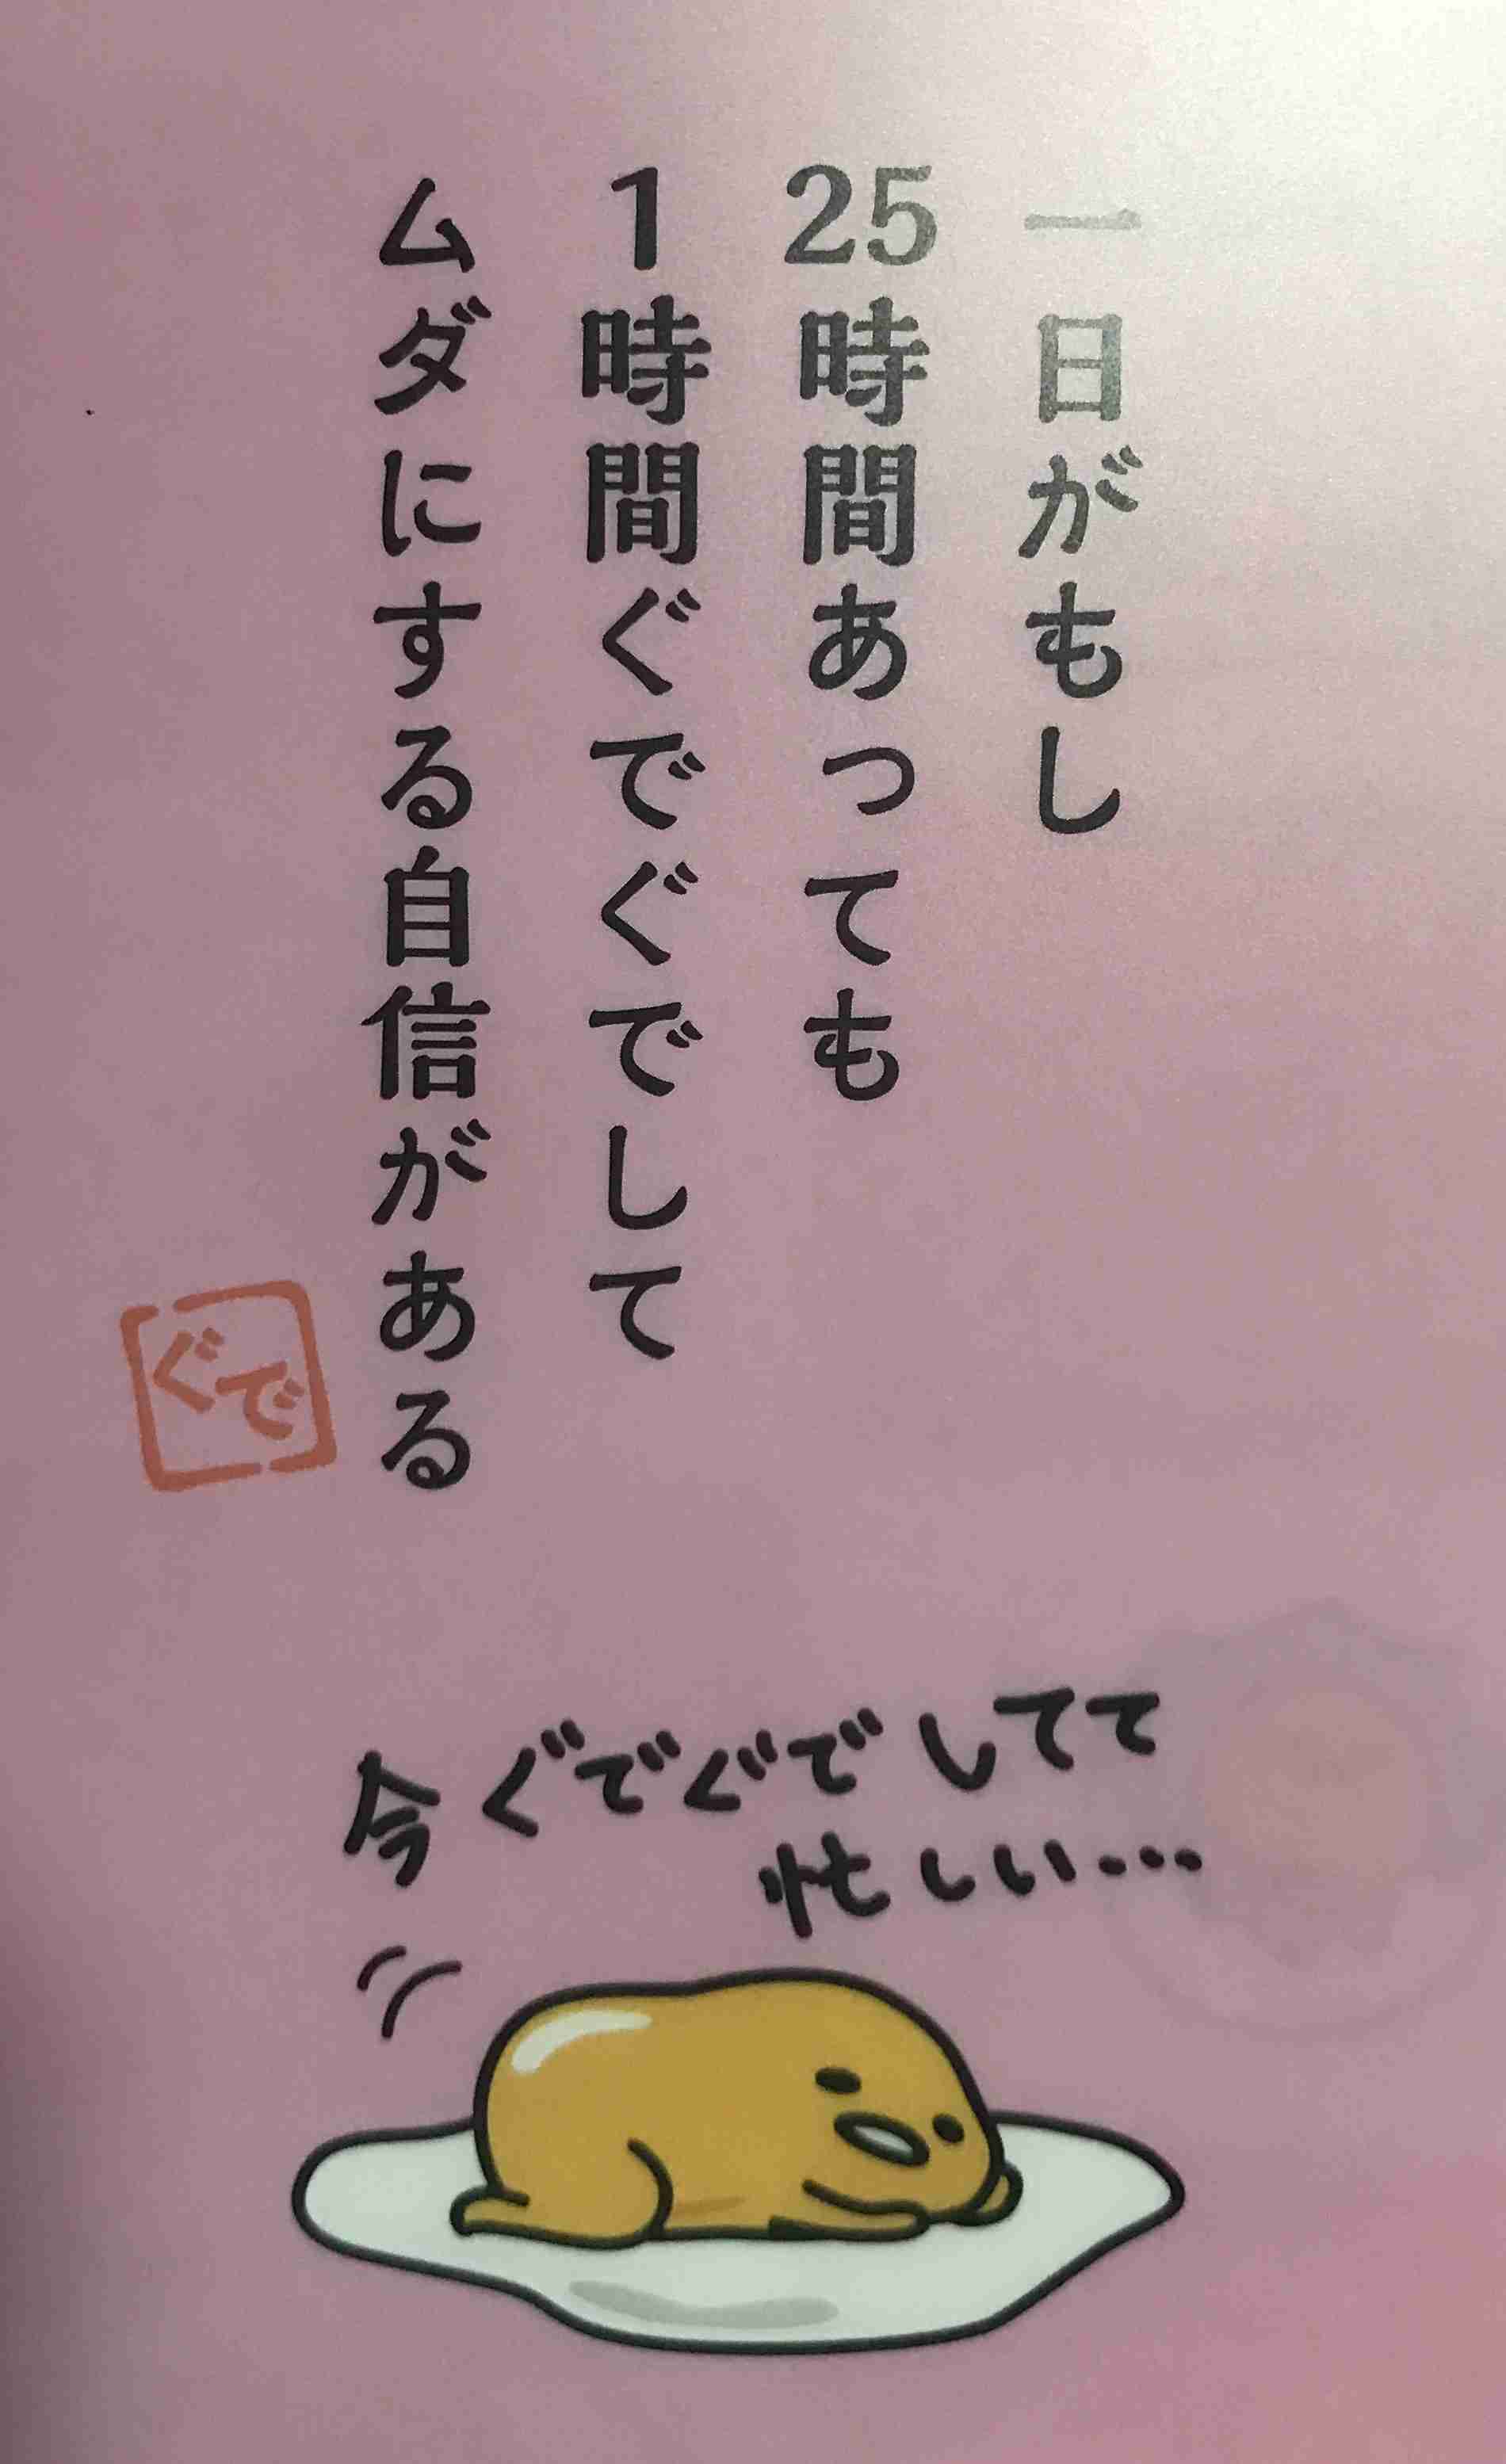 一日がもし
25時間あっても
1時間ぐでぐでして
ムダにする自信がある
ぐで
今ぐでぐでしてて
忙しい…